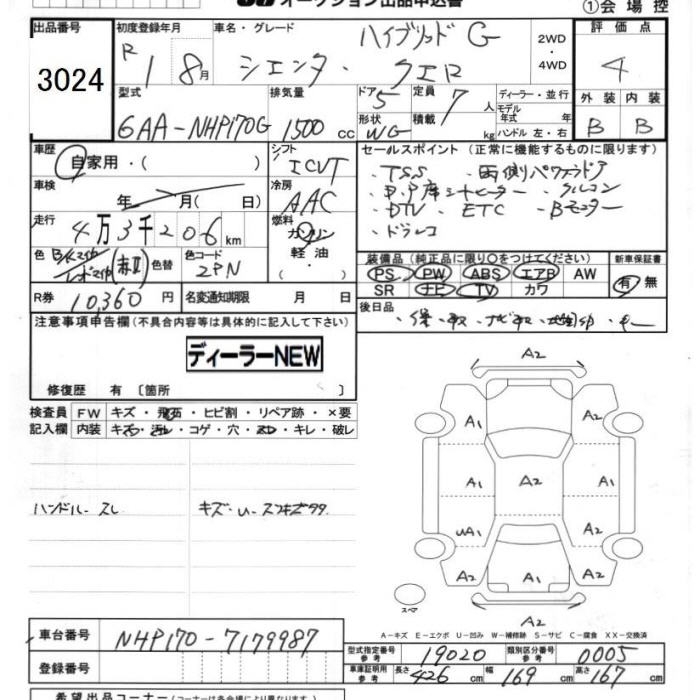 オークション出品申込書
①会場控
出品番号
3024
初度登録年月
R1 8月
車名・グレード
ハイブリッド G
シエンタ・クエロ
2WD
・
4WD
評価点
4
外装 内装
B B
型式
6AA-NHP170G
排気量
1500cc
ドア 5
形状 WG
定員 7人
積載 kg
ディーラー・並行
モデル
年式 年
ハンドル 左・右
車歴
自家用・( )
シフト
ICVT
車検
年 月( 日)
冷房
AAC
走行
4万3千206km
燃料
ガソリン
軽油
・( )
色
色替
色コード
2PN
R券 10,360円
名変通知期限 月 日
セールスポイント(正常に機能するものに限ります)
・TSS ・両側パワスラドア
・シートヒーター ・クルコン
・DTV ・ETC ・Bモニター
・ドラレコ
装備品(純正品に限り○をつけてください)
PS PW ABS エアB AW
SR ナビ TV カワ
新車保証書
有・無
後日品
・保・取・ナビ取
注意事項申告欄(不具合内容等は具体的に記入して下さい)
ディーラーNEW
修復歴 有〔箇所 〕
検査員 FW キズ・飛石・ヒビ割・リペア跡・×要
記入欄 内装 キズ・汚レ・コゲ・穴・スレ・キレ・破レ
ハンドルースレ
キズ・U・スリキズ
A2
A1 A2
A1 A2 A1
UA1 A1
A2 A1 A2
A2
スペア
A-キズ E-エクボ U-凹み W-補修跡 S-サビ C-腐食 XX-交換済
車台番号 NHP170-7179987
登録番号
型式指定番号 参考 19020
類別区分番号 参考 0005
車庫証明用 参考 長さ 426cm 幅 169cm 高さ 167cm
希望出品コーナー(コーナーは各会場により異なります)